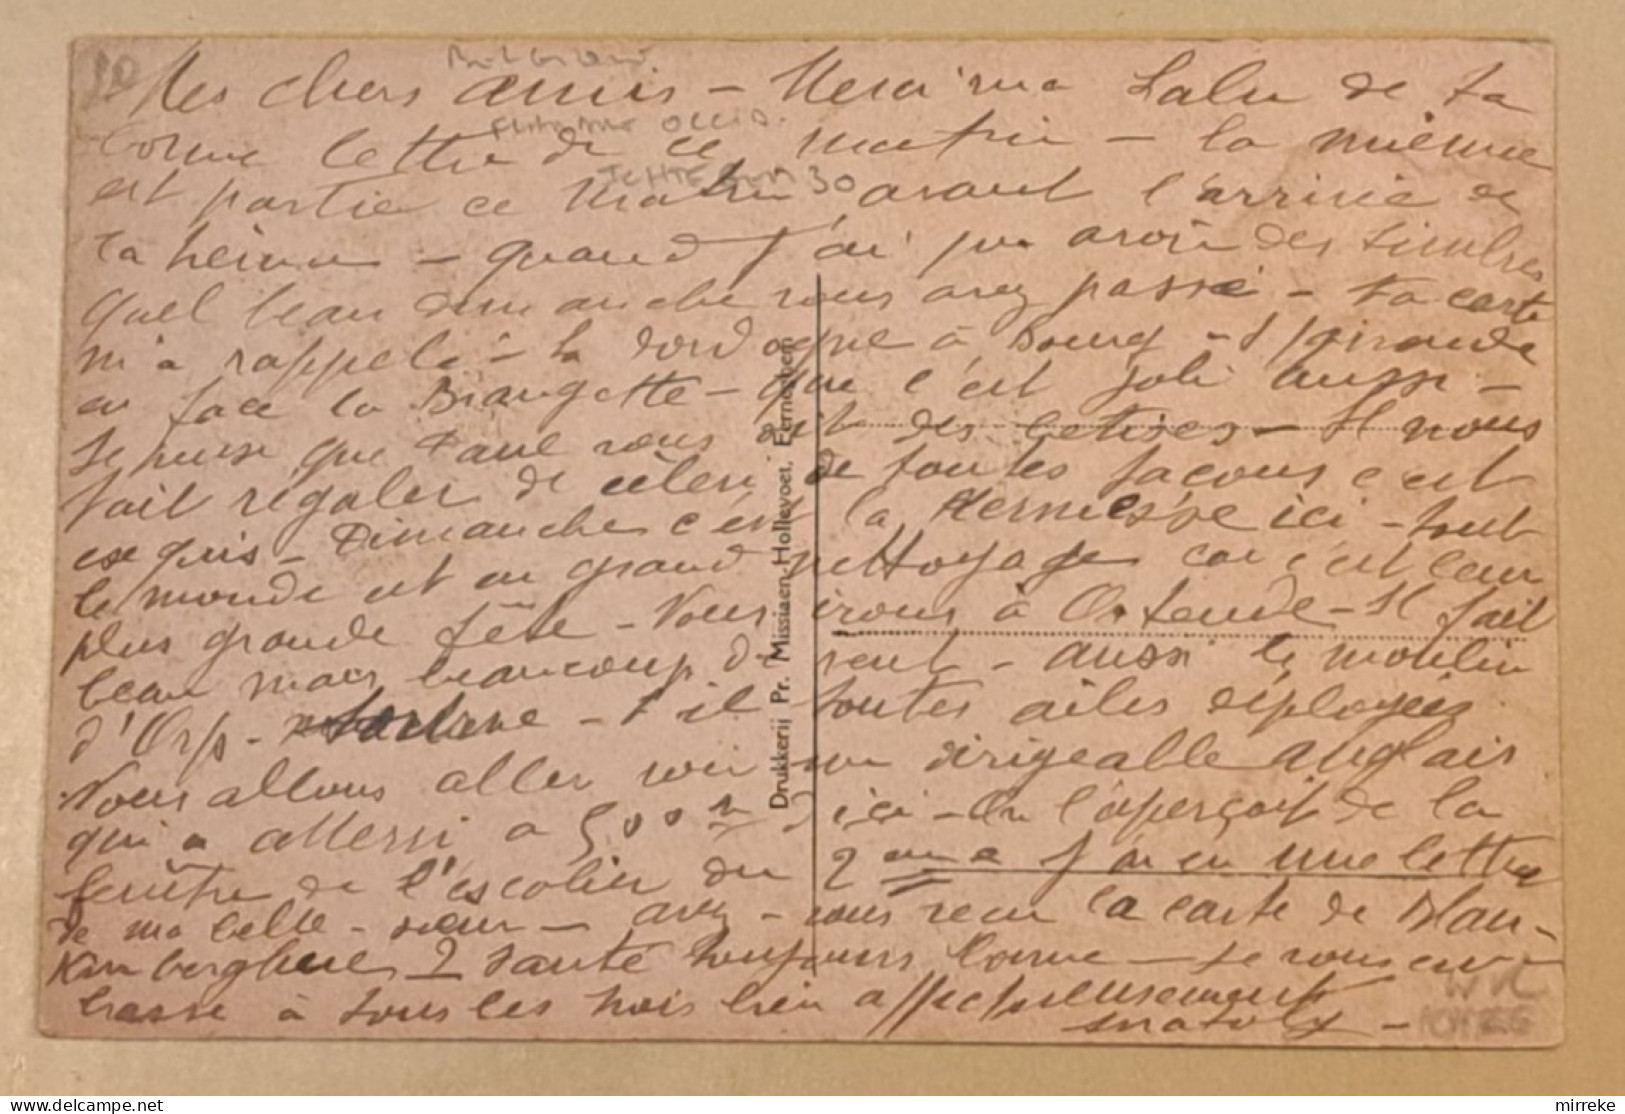 Mes chers amis – Merci ma Lalu de ta
bonne lettre de ce matin – la mienne
est partie ce matin avant l'arrivée de
la tienne – quand j'ai pu avoir des timbres
quel beau dimanche vous avez passé – ta carte
m'a rappelé – la Dordogne à Bourg – s/ gironde
en face la – que c'est joli aussi –
Je pense que Paul vous dit des betises – Il nous
fait régaler de céleri, de toutes façons c'est
exquis – Dimanche c'est la Kermesse ici – tout
le monde est en grand nettoyage car c'est leur
plus grande fête – Nous irons à Ostende – Il fait
beau mais beaucoup de vent – aussi le moulin
d' – t'il toutes ailes déployées
Nous allons aller voir un dirigeable anglais
qui a atterri a 500 m d'ici – On l'aperçoit de la
fenêtre de l'escalier du 2eme J'ai eu une lettre
de ma belle-sœur – avez-vous reçu la carte de Blan-
kenberghe ? Santé toujours bonne – Je vous em-
brasse à tous les trois bien affectueusement
Drukkerij Pr. Missiaen-Hollevoet, Eerneghem
mirreke